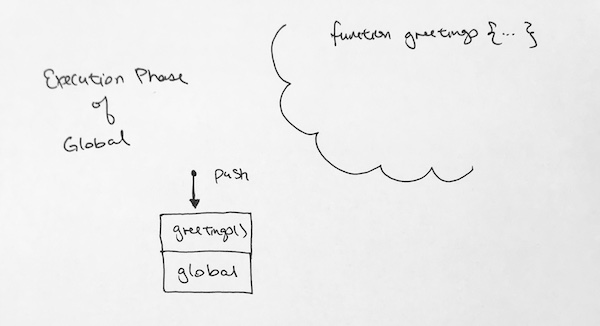 function greetings {... }
Execution Phase
of
Global
push
greetings()
global